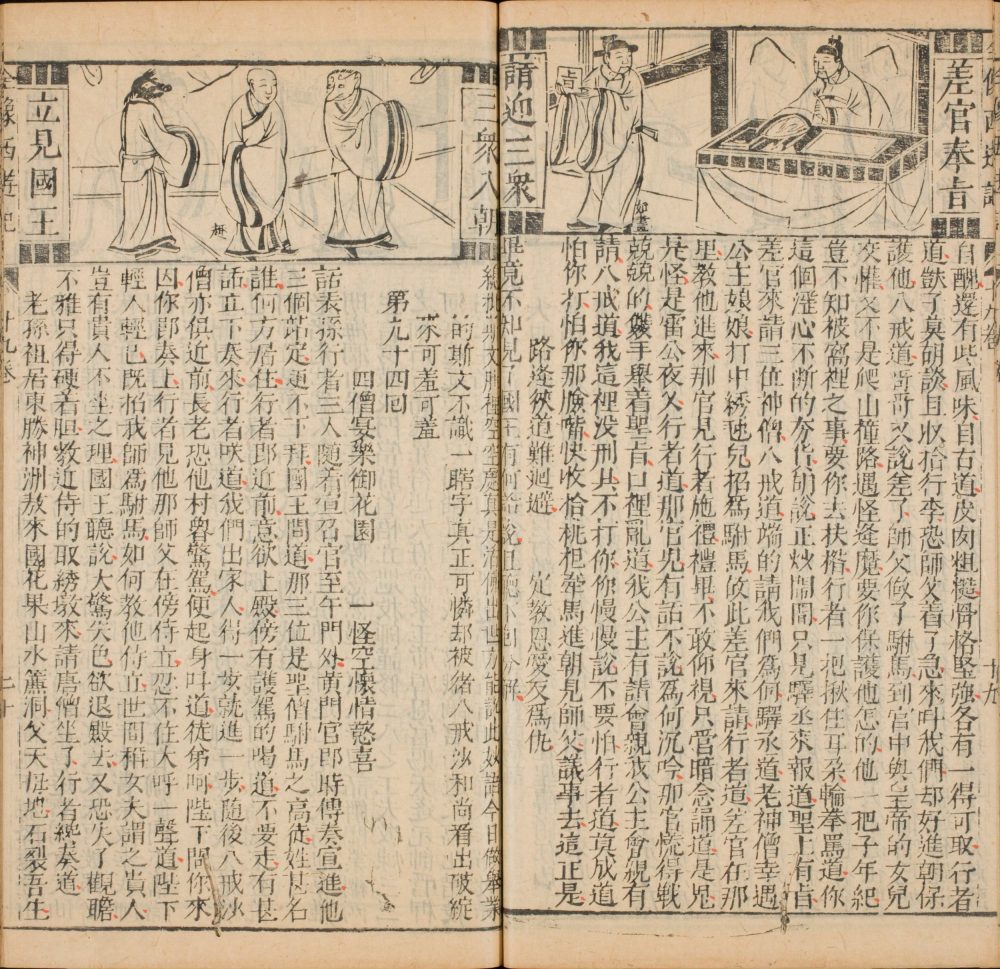 差官奉旨
請迎三衆
旨
自醜還有些風味自古道皮肉粗糙骨格堅強各有一得可取行者
道獃子莫胡談且收拾行李恐師父着了急來叫我們却好進朝保
護他八戒道哥哥又說差了師父做了駙馬到宮中與皇帝的女兒
交懽又不是爬山蹱路遇怪逢魔要你保護他怎的他一把子年紀
豈不知被窩裡之事要你去扶揝行者一把揪住耳朶輪拳罵道你
這個淫心不断的夯貨胡說正炒閙間只見驛丞來報道聖上有旨
差官來請三位神們八戒道端的請我們為何驛丞道老神僧幸遇
公主娘娘打中綉毬兒招為駙馬故此差官來請行者道差官在那
里教他進來那官見行者施禮禮畢不敢仰視只管暗念誦道是鬼
是怪是雷公夜乂行者道那官兒有話不說為何沉吟那官慌得戰
兢兢的雙手舉着聖旨口裡亂道我公主有請會親我公主會親有
請八戒道我這裡没刑具不打你你慢慢說不要怕行者道莫成道
怕你打怕你那臉嘴快收拾挑担牽馬進朝見師父議事去這正是
路逢狹道難迴避　定教恩愛反為仇
畢竟不知見了國王有何話說且聽下回分解
十九
三衆入朝
立見國王
總批斯文肚裡空空處真是活佛出世方能說此妙語今日做舉業
的斯文不識一瞎字真正可憐却被猪八戒沙和尚看出破綻
來可羞可羞
第九十四回
四僧宴樂御花園　一怪空懷情慾喜
話表孫行者三人隨着宣召官至午門外黄門官即時傳奏宣進他
三個站定更不下拜國王問道那三位是聖僧駙馬之高徒姓甚名
誰何方居住行者即近前意欲上殿傍有護駕的喝道不要走有甚
話立下奏來行者咲道我們出家人得一步就進一步随後八戒沙
僧亦俱近前長老恐他村魯驚駕便起身叫道徒弟呵陛下問你來
因你即奏上行者見他那師父在傍侍立忍不住大呼一聲道陛下
輕人輕己既招我師為駙馬如何教他侍立世間稱女夫謂之貴人
豈有貴人不坐之理國王聽說大驚失色欲退殿去又恐失了觀瞻
不雅只得硬着胆教近侍的取綉墩來請唐僧坐了行者纔奏道
老孫祖居東勝神洲敖來國花果山水簾洞父天母地石裂吾生
十九卷
二十